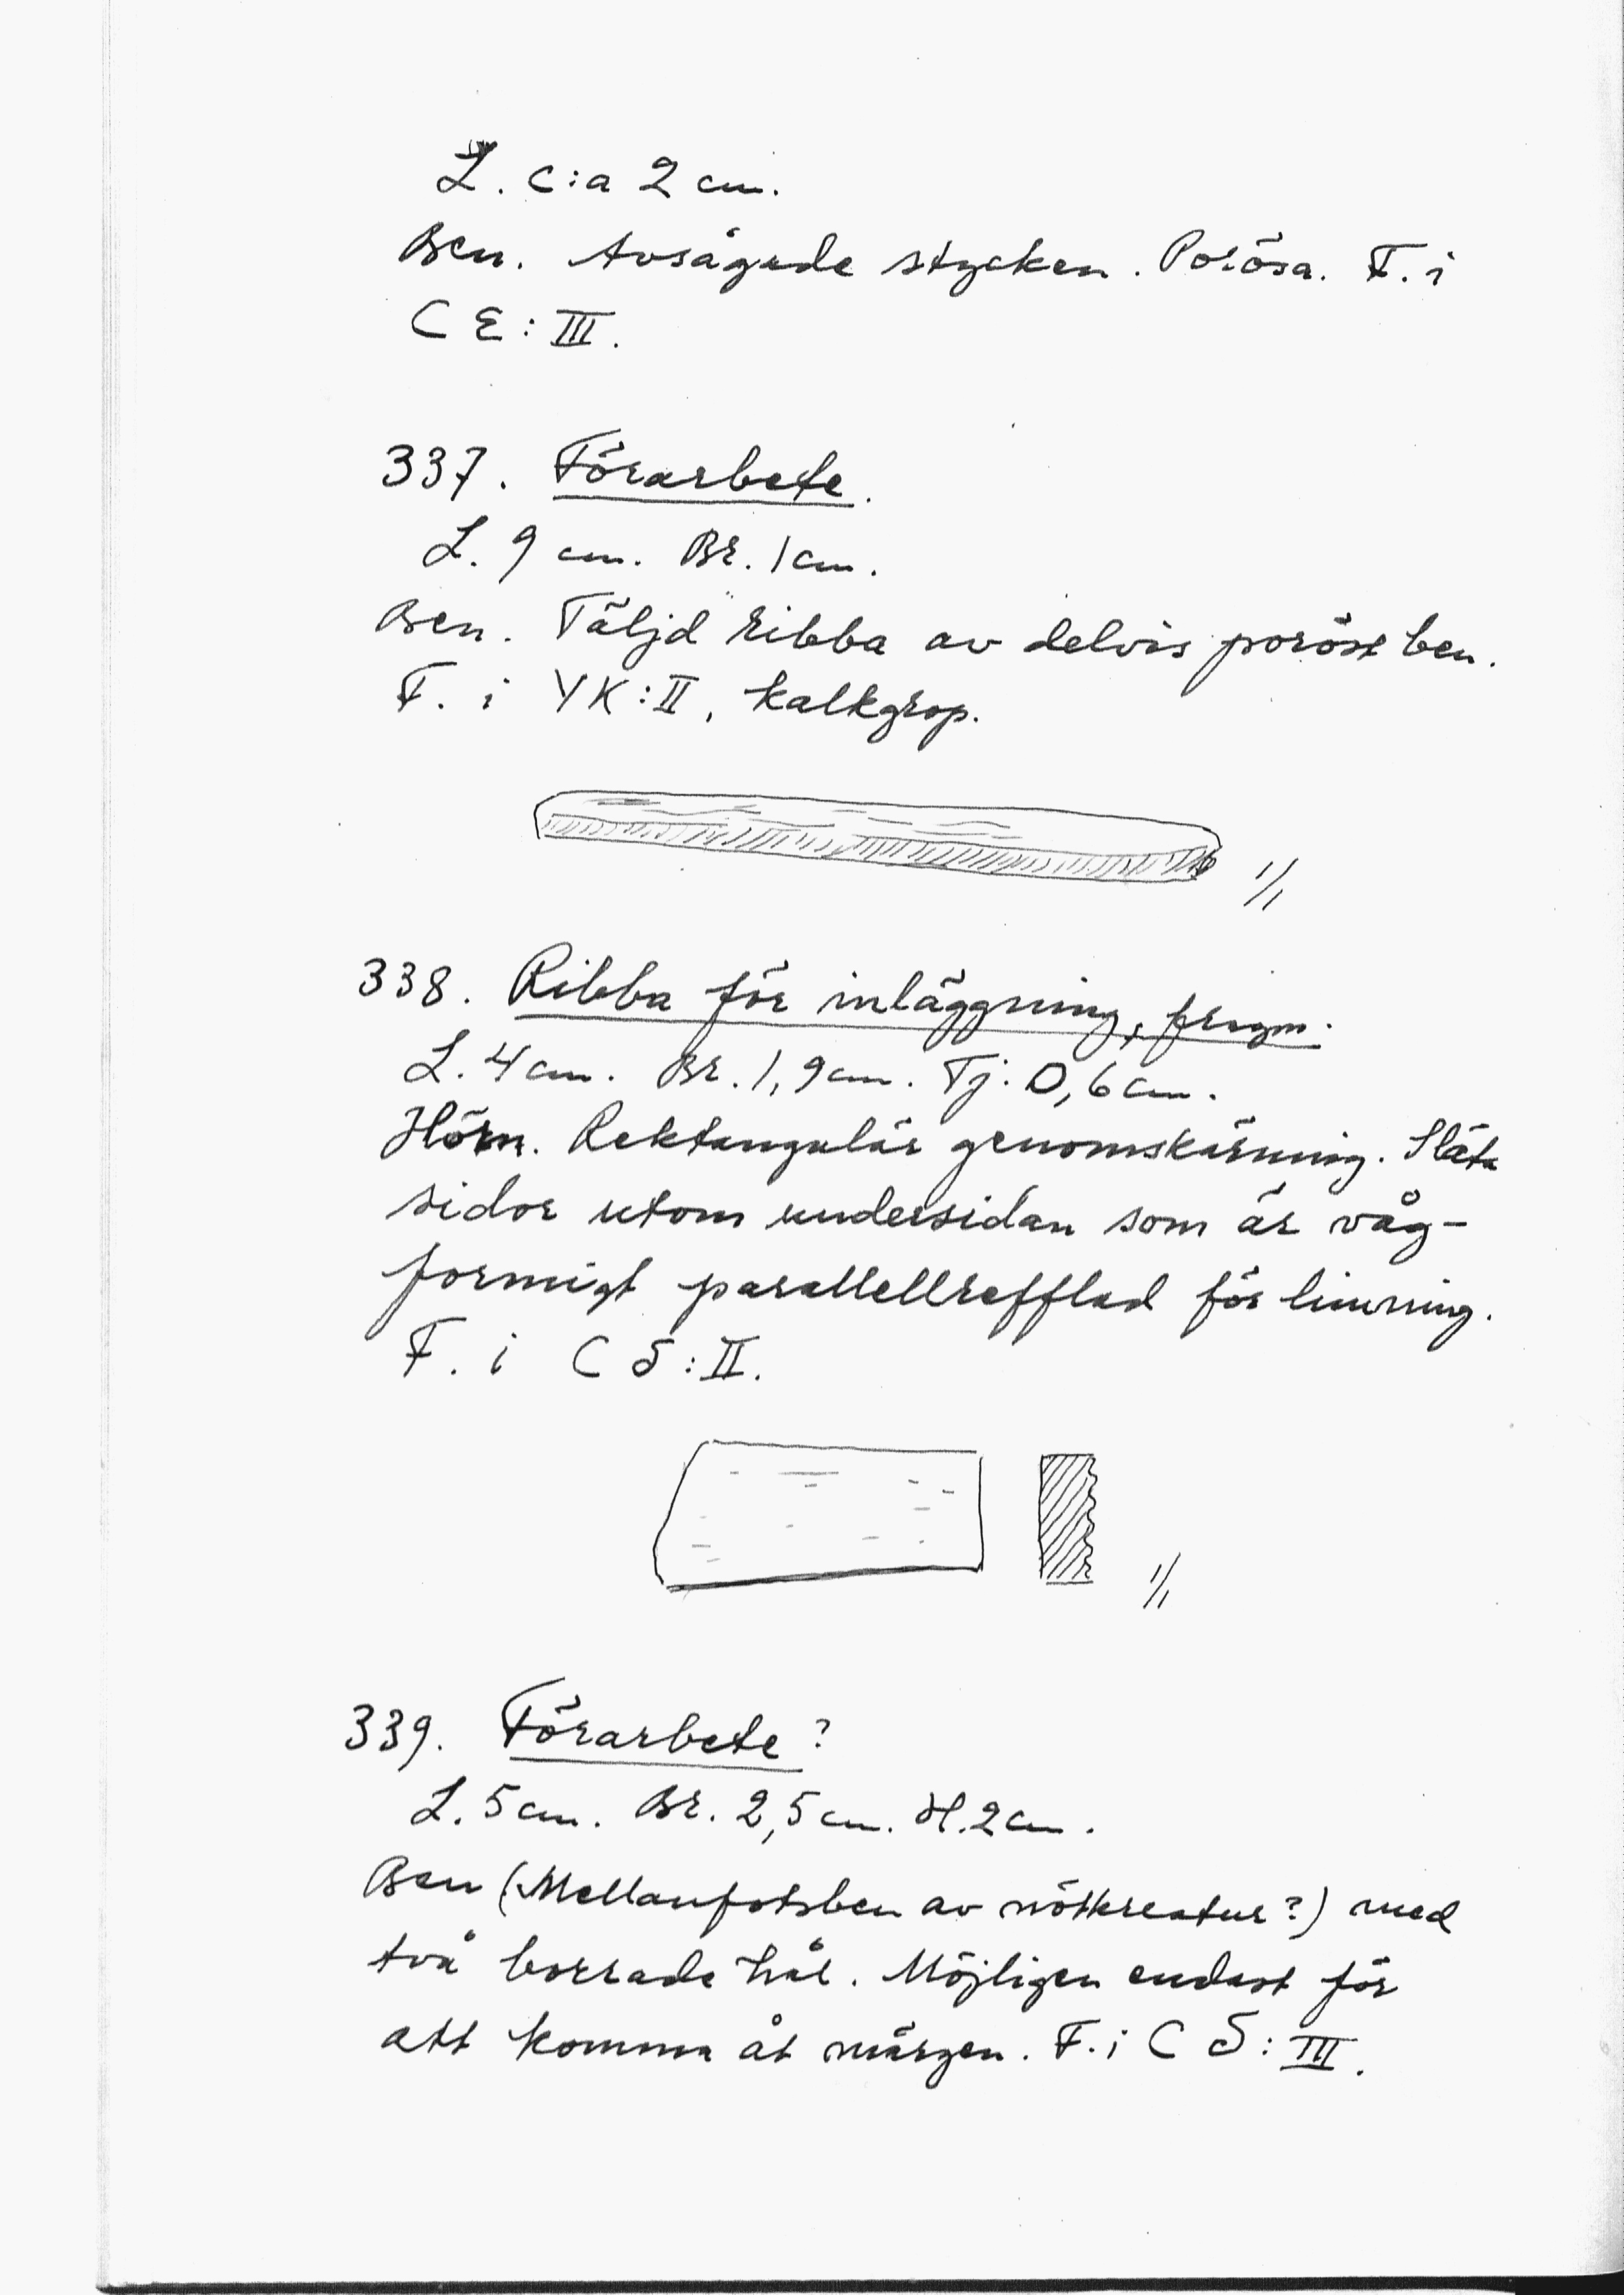 L. c:a 2 cm.
Ben. Avsågade stycken. Porösa. F. i
C E : III.
337. Förarbete.
L. 9 cm. Br. 1 cm.
Ben. Täljd ribba av delvis poröst ben.
F. i YK : II, kalkgrop.
1/1
338. Ribba för inläggning, fragm.
L. 4 cm. Br. 1,9 cm. Tj. 0,6 cm.
Horn. Rektangulär genomskärning. Släta
sidor utom undersidan som är våg-
formigt parallellrefflad för limning.
F. i C S : II.
1/1
339. Förarbete?
L. 5 cm. Br. 2,5 cm. H. 2 cm.
Ben (Mellanfotsben av nötkreatur?) med
två borrade hål. Möjligen endast för
att komma åt märgen. F. i C S : III.